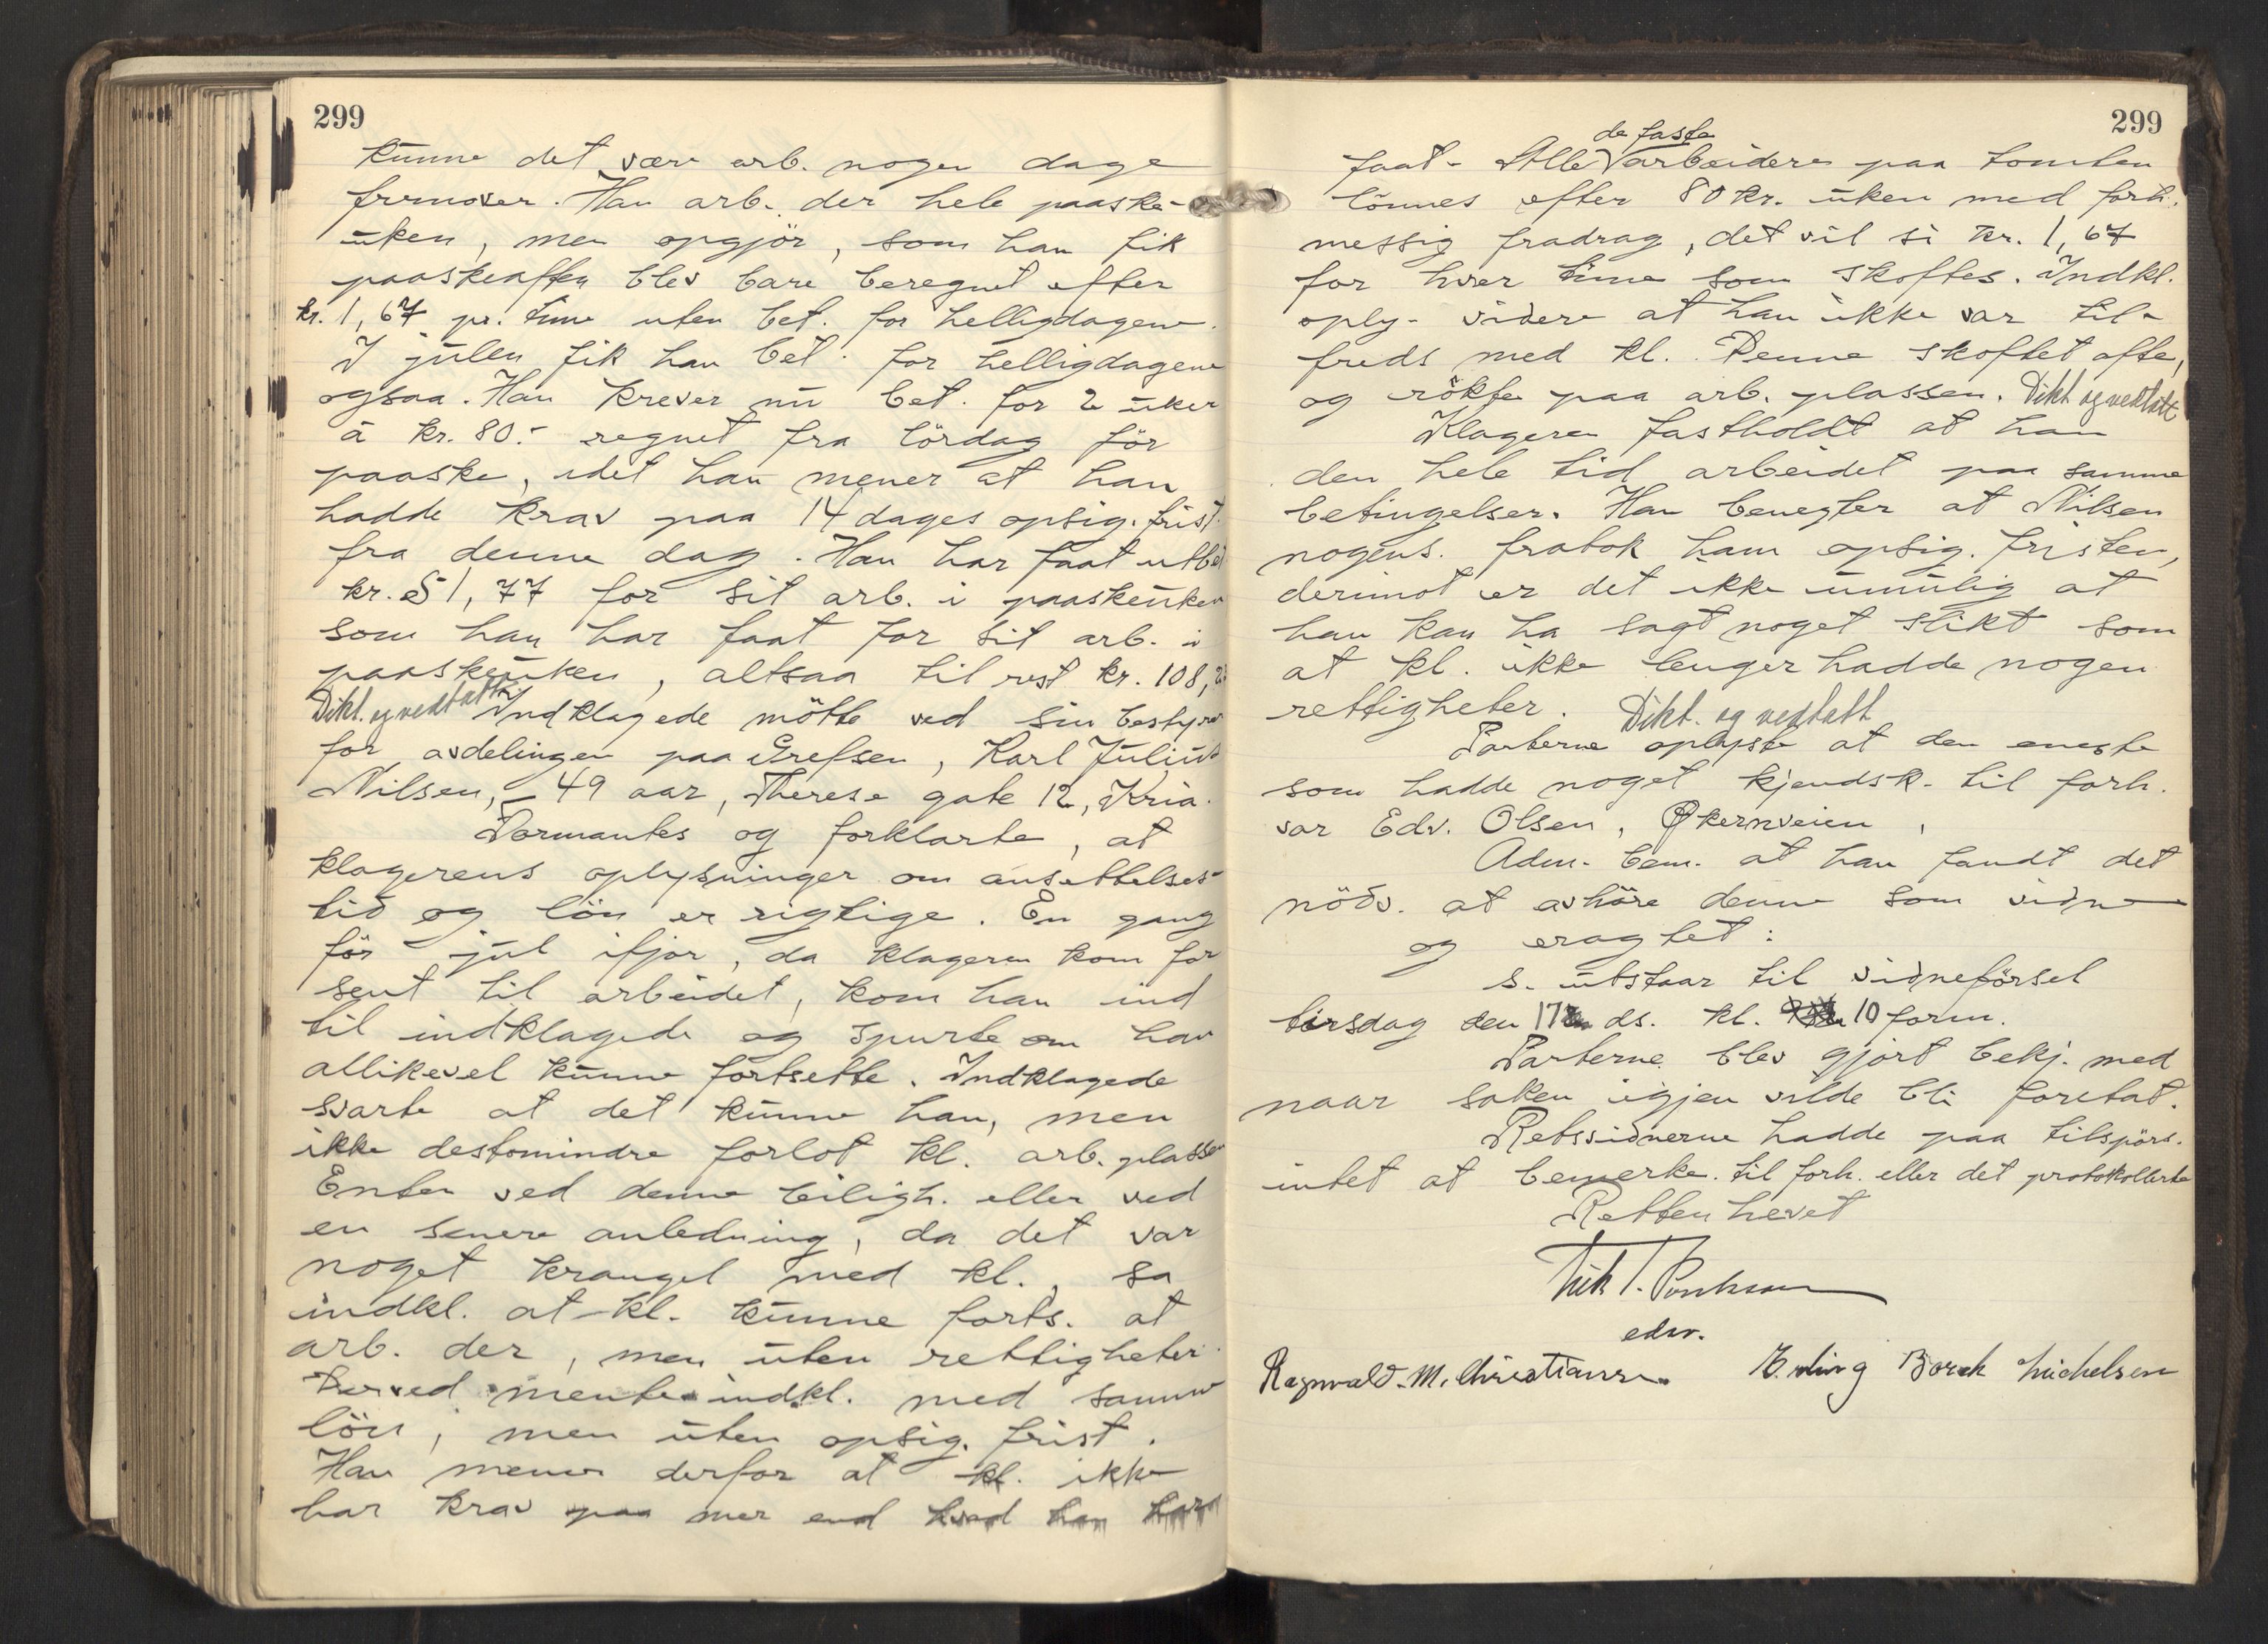 299
kunne det være arb. nogen dage
fremover. Han arb. der hele paaske-
uken, men opgjör, som han fik
paaskeaften blev bare beregnet efter
kr. 1,67 pr. time uten bet. for helligdagene.
I julen fik han bet. for helligdagene
ogsaa. Han krever nu bet. for 2 uker
à kr. 80.- regnet fra lördag för
paaske, idet han mener at han
hadde krav paa 14 dages opsig. frist.
fra denne dag. Han har faat utbet
kr. 51,77 for sit arb. i paaskeuken
som han har faat for sit arb. i
paaskeuken, altsaa til rest kr. 108,23
Dikt. og vedtatt Indklagede mötte ved sin bestyrer
for avdelingen paa Grefsen, Karl Julius
Nilsen, 49 aar, Therese gate 12, Kria.
Formantes og forklarte, at
klagerens oplysninger om ansettelses-
tid og lön er rigtige. En gang
för jul ifjor, da klageren kom for
sent til arbeidet, kom han ind
til indklagede og spurte om han
allikevel kunne fortsette. Indklagede
svarte at det kunne han, men
ikke destomindre forlot kl. arb. plassen
Enten ved denne leiligh. eller ved
en senere anledning, da det var
noget krangel med kl., sa
indkl. at kl. kunne forts. at
arb. der, men uten rettigheter.
Herved mente indkl. med samme
lön, men uten opsig. frist.
Han mener derfor at kl. ikke
har krav paa mer end hvad han har
299
de faste
faat. Alle arbeidere paa tomten
lönnes efter 80 kr. uken med forh.
messig fradrag, det vil si kr. 1,67
for hver time som skoftes. Indkl.
oply. videre at han ikke var til-
freds med kl. Denne skoftet ofte,
og rökte paa arb. plassen. Dikt og vedtatt
Klageren fastholdt at han
den hele tid arbeidet paa samme
betingelser. Han benegter at Nilsen
nogens. fratok ham opsig. fristen,
derimot er det ikke umulig at
han kan ha sagt noget slikt som
at kl. ikke lenger hadde nogen
rettigheter. Dikt. og vedtatt
Parterne oplyste at den eneste
som hadde noget kjendsk. til forh.
var Edv. Olsen, Økernveien,
Adm. bem. at han fandt det
nödv. at avhöre denne som vidne
og eragtet:
S. utstaar til vidneförsel
tirsdag den 17 ds. kl. 10 form.
Parterne blev gjort bekj. med
naar saken igjen vilde bli foretat.
Retsvidnerne hadde paa tilspörs.
intet at bemerke til forh. eller det protokollerte
Retten hevet
edsv.
Ragnvald. M. Christiansen. Erling Borch Michelsen